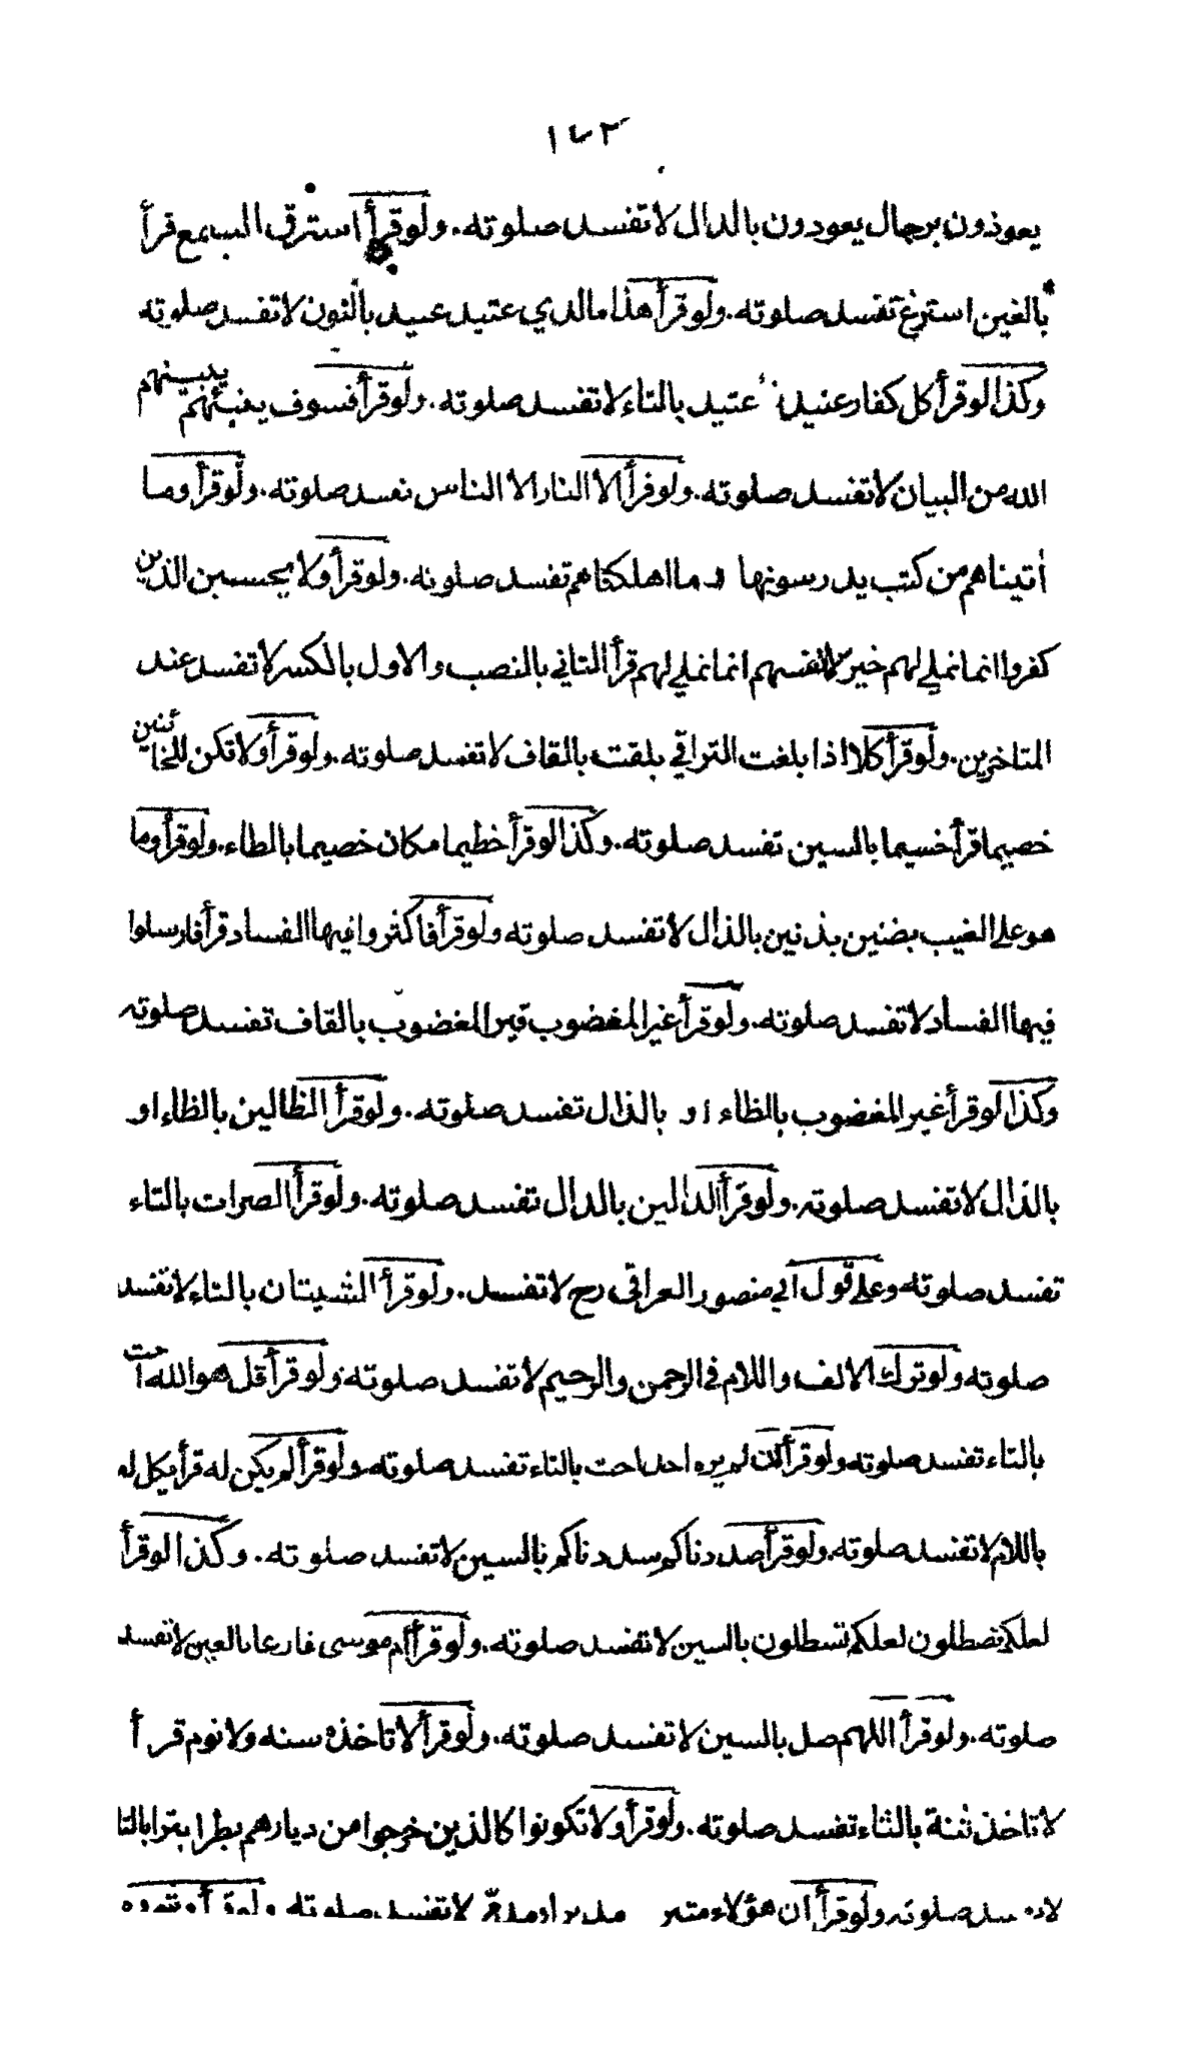 ١٤٢
يعوذون برجال يعودون بالدال لا تفسد صلوته. ولو قرأ استرق السمع قرأ
بالغين استرغ تفسد صلوته. ولو قرأ هذا ما لدي عتيد عنيد بالنون لا تفسد صلوته
وكذا لو قرأ كل كفار عنيد عتيد بالتاء لا تفسد صلوته. ولو قرأ فسوف ينبئهم يبينهم
الله من البيان لا تفسد صلوته. ولو قرأ الا النار الا الناس تفسد صلوته. ولو قرأ وما
أتيناهم من كتب يدرسونها وما اهلكناهم تفسد صلوته. ولو قرأ ولا يحسبن الذين
كفروا انما نملي لهم خير لانفسهم انما نملي لهم قرأ الثاني بالنصب والاول بالكسر لا تفسد عند
المتاخرين. ولو قرأ كلا اذا بلغت التراقي بلقت بالقاف لا تفسد صلوته. ولو قرأ ولا تكن للخائنين
خصيما قرأ خسيما بالسين تفسد صلوته. وكذا لو قرأ خطيما مكان خصيما بالطاء. ولو قرأ وما
هو على الغيب بضنين بذنين بالذال لا تفسد صلوته ولو قرأ فاكثروا فيها الفساد قرأ فارسلوا
فيها الفساد لا تفسد صلوته. ولو قرأ غير المغضوب قير المغضوب بالقاف تفسد صلوته
وكذا لو قرأ غير المغضوب بالظاء او بالذال تفسد صلوته. ولو قرأ الظالين بالظاء او
بالذال لا تفسد صلوته. ولو قرأ الدالين بالدال تفسد صلوته. ولو قرأ الصرات بالتاء
تفسد صلوته وعلى قول ابي منصور العراقي رح لا تفسد. ولو قرأ الشيتان بالتاء لا تفسد
صلوته ولو ترك الالف واللام في الرحمن والرحيم لا تفسد صلوته ولو قرأ قل هو الله احت
بالتاء تفسد صلوته ولو قرأ لم يره احد احت بالتاء تفسد صلوته ولو قرأ لم يكن له قرأ يكل له
باللام لا تفسد صلوته. ولو قرأ صددناكم سددناكم بالسين لا تفسد صلوته. وكذا لو قرأ
لعلكم تصطلون لعلكم تسطلون بالسين لا تفسد صلوته. ولو قرأ ام موسى فارعا بالعين لا تفسد
صلوته. ولو قرأ اللهم صل بالسين لا تفسد صلوته. ولو قرأ لا تاخذه سنه ولا نوم قرأ
لا تاخذ ثنة بالثاء تفسد صلوته. ولو قرأ ولا تكونوا كالذين خرجوا من ديارهم بطرا بترا بالتا
صلوته ولو قرأ ان هؤلاء متبر لا تفسد صلوته ولو قرأ